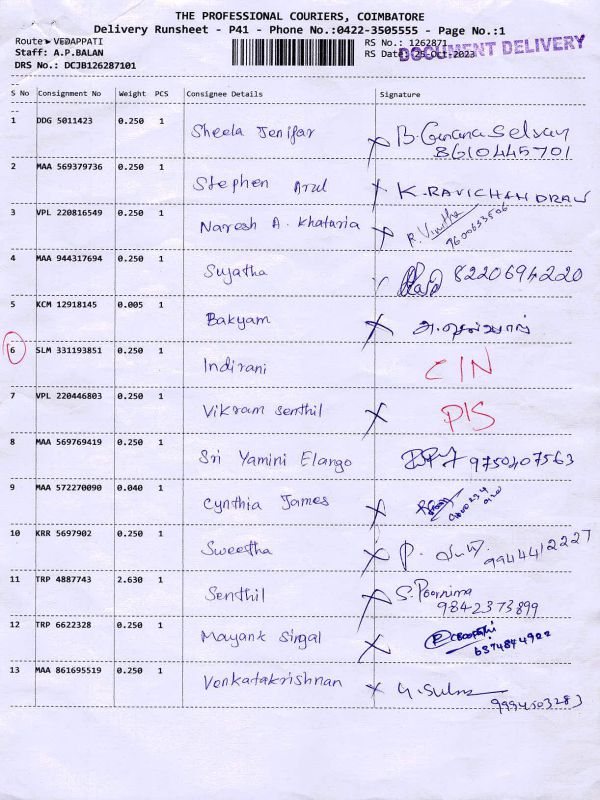 THE PROFESSIONAL COURIERS, COIMBATORE
Delivery Runsheet - P41 - Phone No.:0422-3505555 - Page No.:1
Route ► VEDAPPATI
RS No.: 1262871
Staff: A.P.BALAN
RS Date: 25-Oct-2023
DOCUMENT DELIVERY
DRS No.: DCJB126287101
S No Consignment No Weight PCS Consignee Details Signature
1 DDG 5011423 0.250 1 Sheela Jenifar B. Gnana Selvan
8610445701
2 MAA 569379736 0.250 1 Stephen Arul K. RAVICHANDRAN
3 VPL 220816549 0.250 1 Naresh A. Khataria R. Vinitha
9600633506
4 MAA 944317694 0.250 1 Sujatha 8220694220
5 KCM 12918145 0.005 1 Bakyam
6 SLM 331193851 0.250 1 Indirani C/N
7 VPL 220446803 0.250 1 Vikram Senthil P/S
8 MAA 569769419 0.250 1 Sri Yamini Elango 9750407563
9 MAA 572270090 0.040 1 Cynthia James
10 KRR 5697902 0.250 1 Sweetha P.
9944412227
11 TRP 4887743 2.630 1 Senthil S. Poornima
9842373899
12 TRP 6622328 0.250 1 Mayank Singal
6374844922
13 MAA 861695519 0.250 1 Venkatakrishnan
9994503283